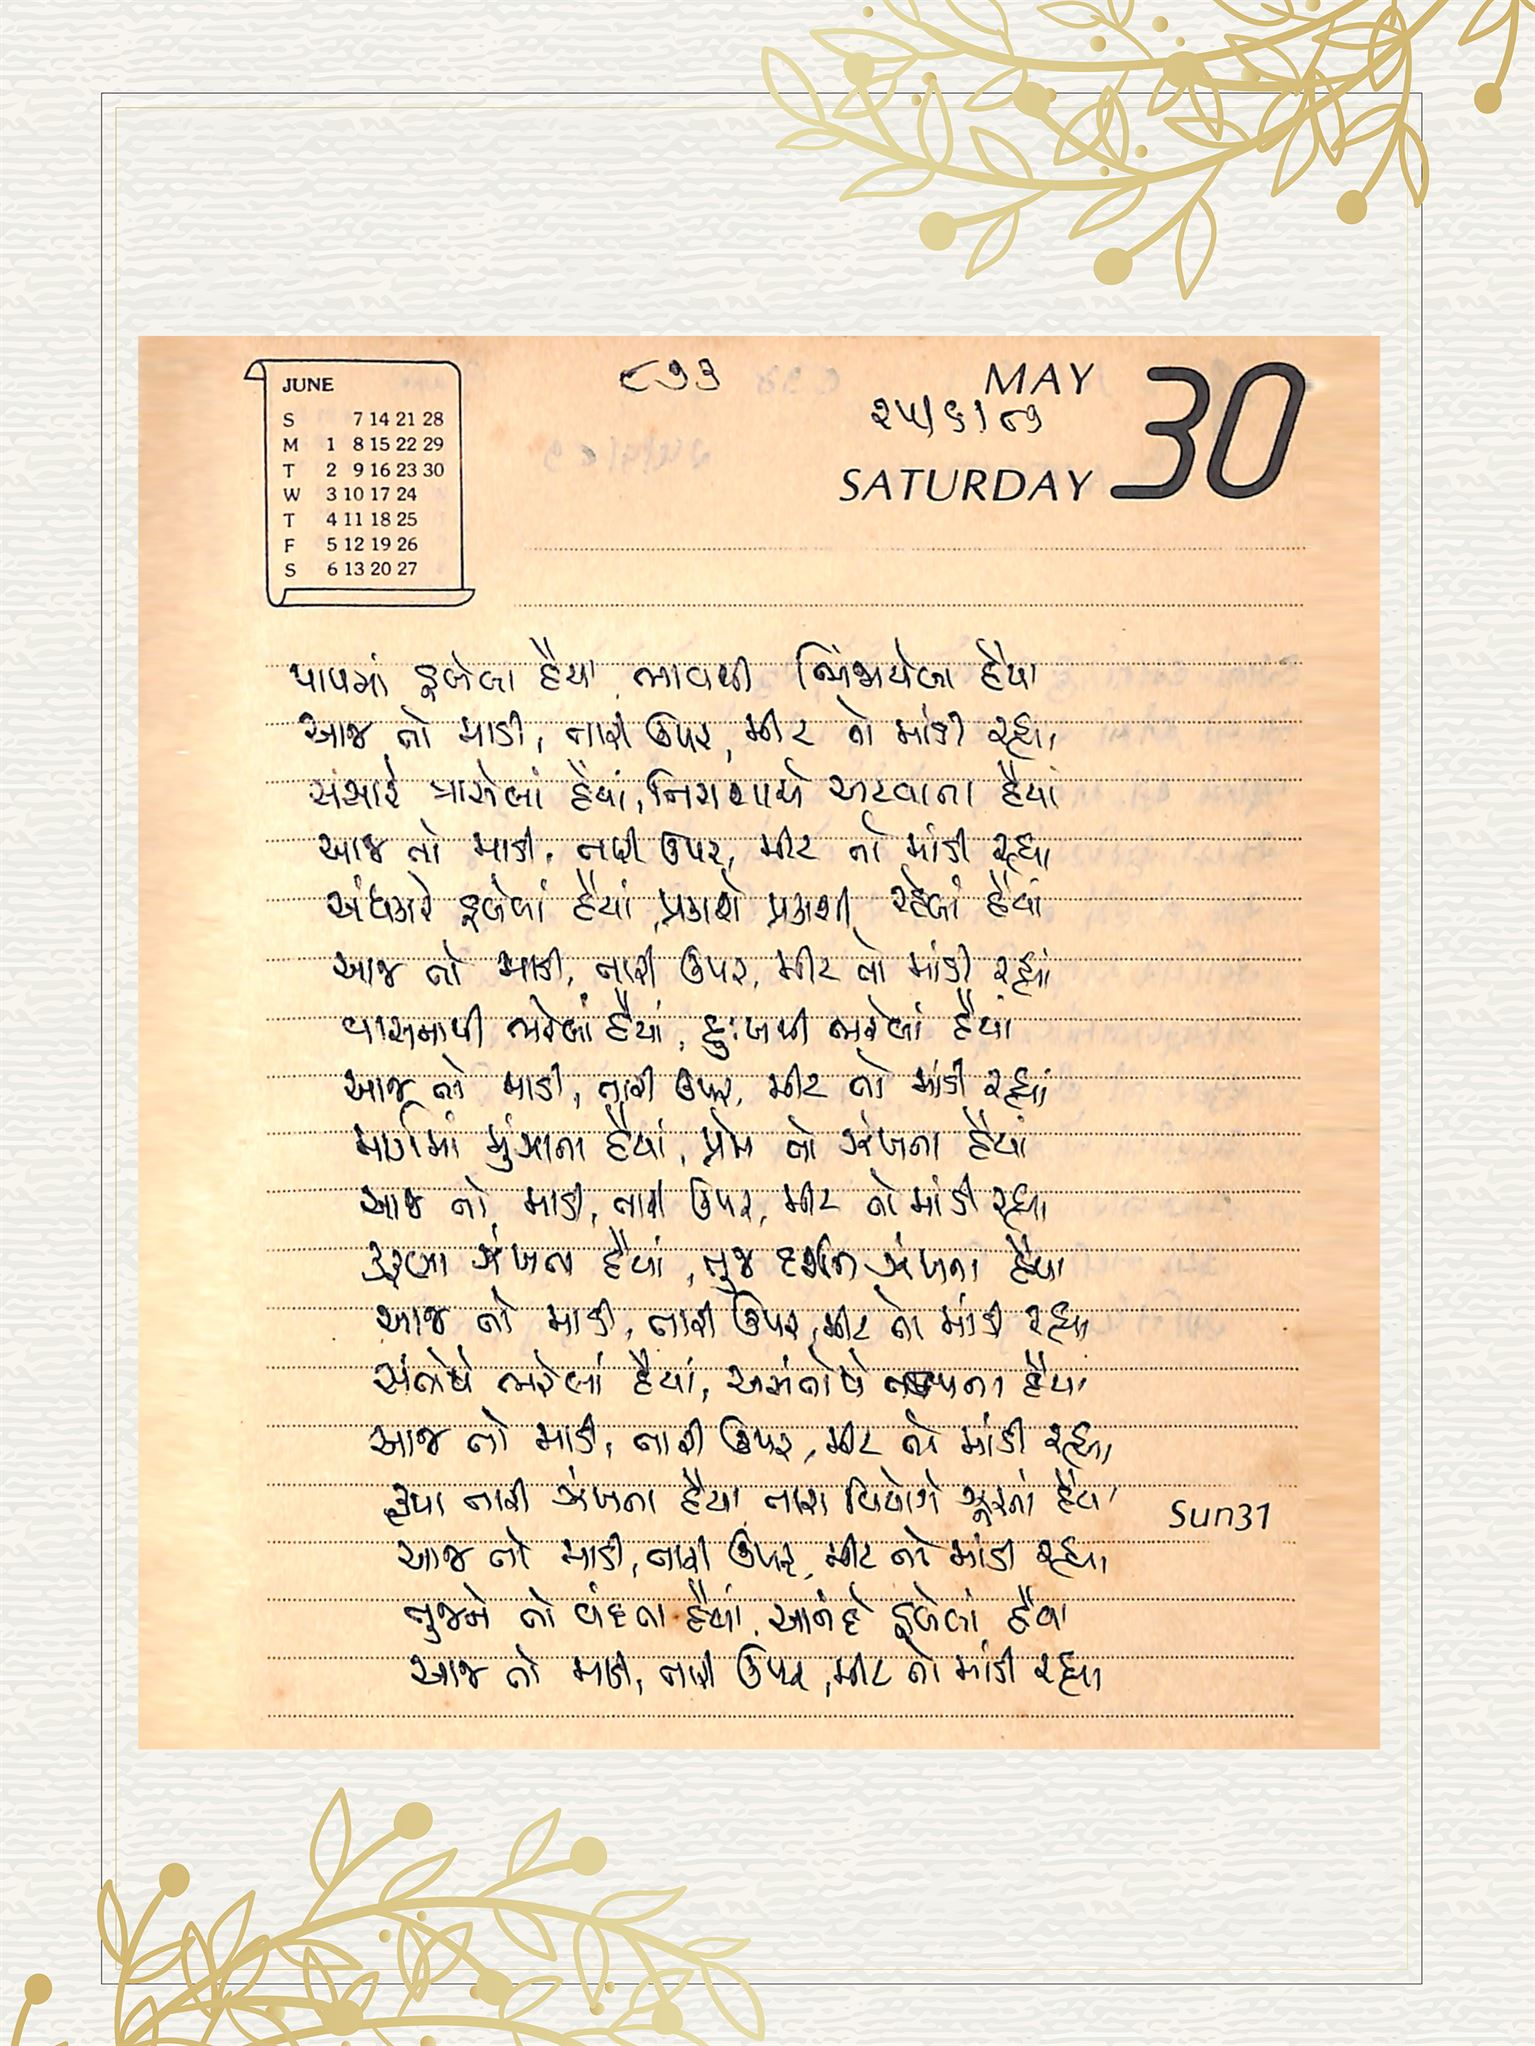 ૮૭૩
MAY 30
૨૫/૬/૮૭
SATURDAY
JUNE
S 7 14 21 28
M 1 8 15 22 29
T 2 9 16 23 30
W 3 10 17 24
T 4 11 18 25
F 5 12 19 26
S 6 13 20 27
પાપમાં ડૂબેલા હૈયા, ભાવથી ભિંજાયેલા હૈયા
આજ તો માડી, તારી ઉપર, મીટ તો માંડી રહ્યા
સંસારે ત્રાસેલાં હૈયાં, નિરાશાએ અટવાતા હૈયાં
આજ તો માડી, તારી ઉપર, મીટ તો માંડી રહ્યા
અંધકારે ડૂબેલાં હૈયાં, પ્રકાશે પ્રકાશી રહેલાં હૈયાં
આજ તો માડી, તારી ઉપર, મીટ તો માંડી રહ્યાં
વાસનાથી ભરેલાં હૈયાં, દુઃખથી ભરેલાં હૈયાં
આજ તો માડી, તારી ઉપર, મીટ તો માંડી રહ્યાં
માર્ગમાં મુંઝાતા હૈયાં, પ્રેમ તો ઝંખતા હૈયાં
આજ તો માડી, તારી ઉપર, મીટ તો માંડી રહ્યા
કરુણા ઝંખતા હૈયાં, તુજ દર્શન ઝંખતા હૈયા
આજ તો માડી, તારી ઉપર, મીટ તો માંડી રહ્યા
સંતોષે ભરેલાં હૈયાં, અસંતોષે તડપતા હૈયા
આજ તો માડી, તારી ઉપર, મીટ તો માંડી રહ્યા
કૃપા તારી ઝંખતા હૈયા તારા વિયોગે ઝૂરતાં હૈયા
Sun 31
આજ તો માડી, તારી ઉપર, મીટ તો માંડી રહ્યા
તુજને તો વંદતા હૈયાં, આનંદે ડૂબેલાં હૈયા
આજ તો માડી, તારી ઉપર, મીટ તો માંડી રહ્યા